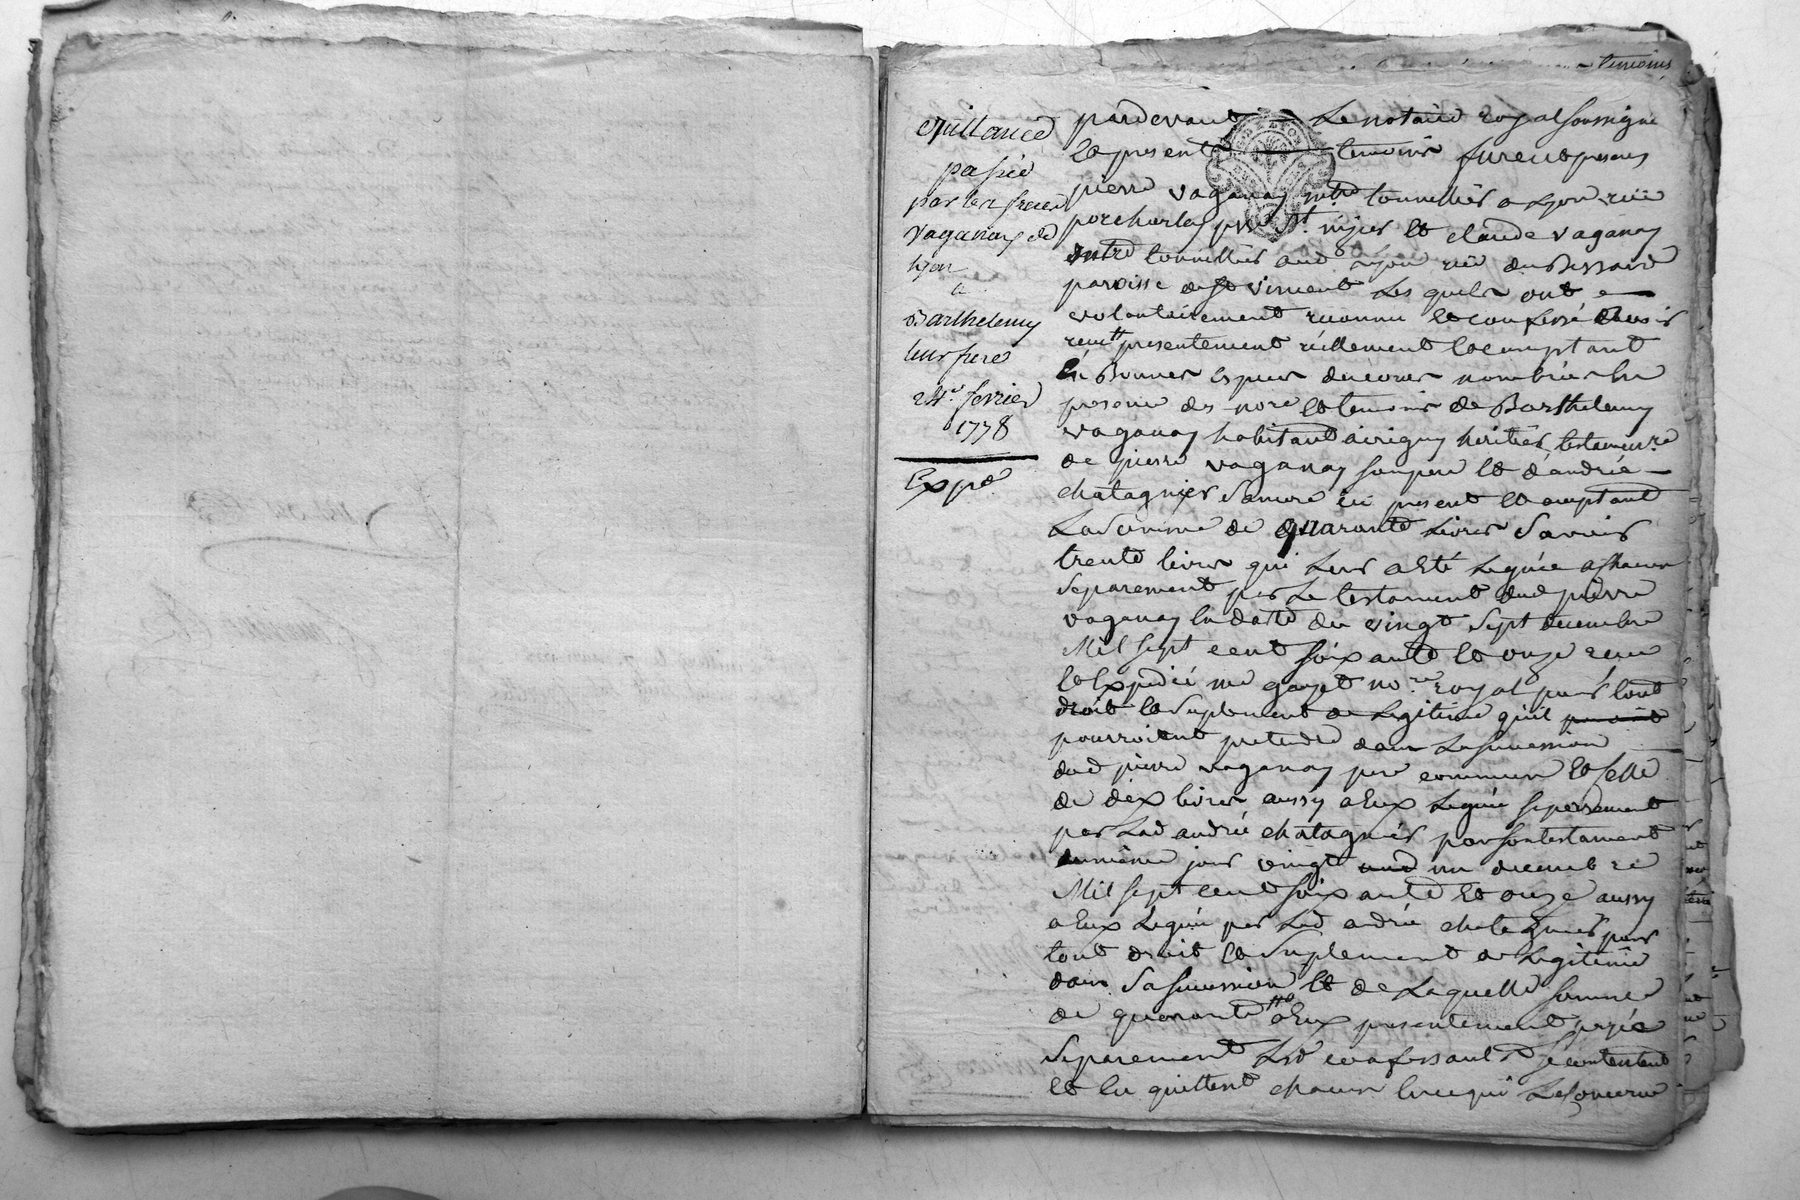 temoins
quittance
passée
par les freres
Vaganay de
lyon
a
Barthelemy
leur frere
24e fevrier
1778
Expé
pardevant Le notaire royal soussigné
et presents temoins furent presens
pierre vaganay mtre tonnellier a Lyon rüe
porcharlay psse St nizier et claude vaganay
mtre tonnellier aud Lyon rüe du Bessard
paroisse de St vincent Les quels ont
volontairement reconnu et confessé avoir
reçu presentement réellement et comptant
en Bonnes especes de cours nombrées en
presence des nore et temoins de Barthelemy
vaganay habitant a irigny heritier testamenre
de pierre vaganay son pere et d'andrée
chatagnier sa mere ici present et acceptant
La somme de quarante Livres Savoir
trente livres qui Leur a Eté Leguée a chacun
Separement par Le testament dud pierre
vaganay en datte du vingt sept decembre
Mil sept cent soixante et onze reçu
et Expedié me gayet nore royal pour tout
droit et suplement de Legitime qu'il
pourroient pretendre dans La succession
dud pierre vaganay pere commun et celle
de dix livres aussy a Eux Leguée separement
par Lad andrée chatagnier par son testament
du même jour vingt un decembre
Mil sept cent soixante et onze aussy
a Eux Leguée par Lad andrée chatagnier pour
tout droit et Suplement de Legitime
dans Sa succession et de Laquelle somme
de quarante tt a Eux presentement payée
Separement Led confessants Se contentent
et En quittent chacun En ce qui Le concerne